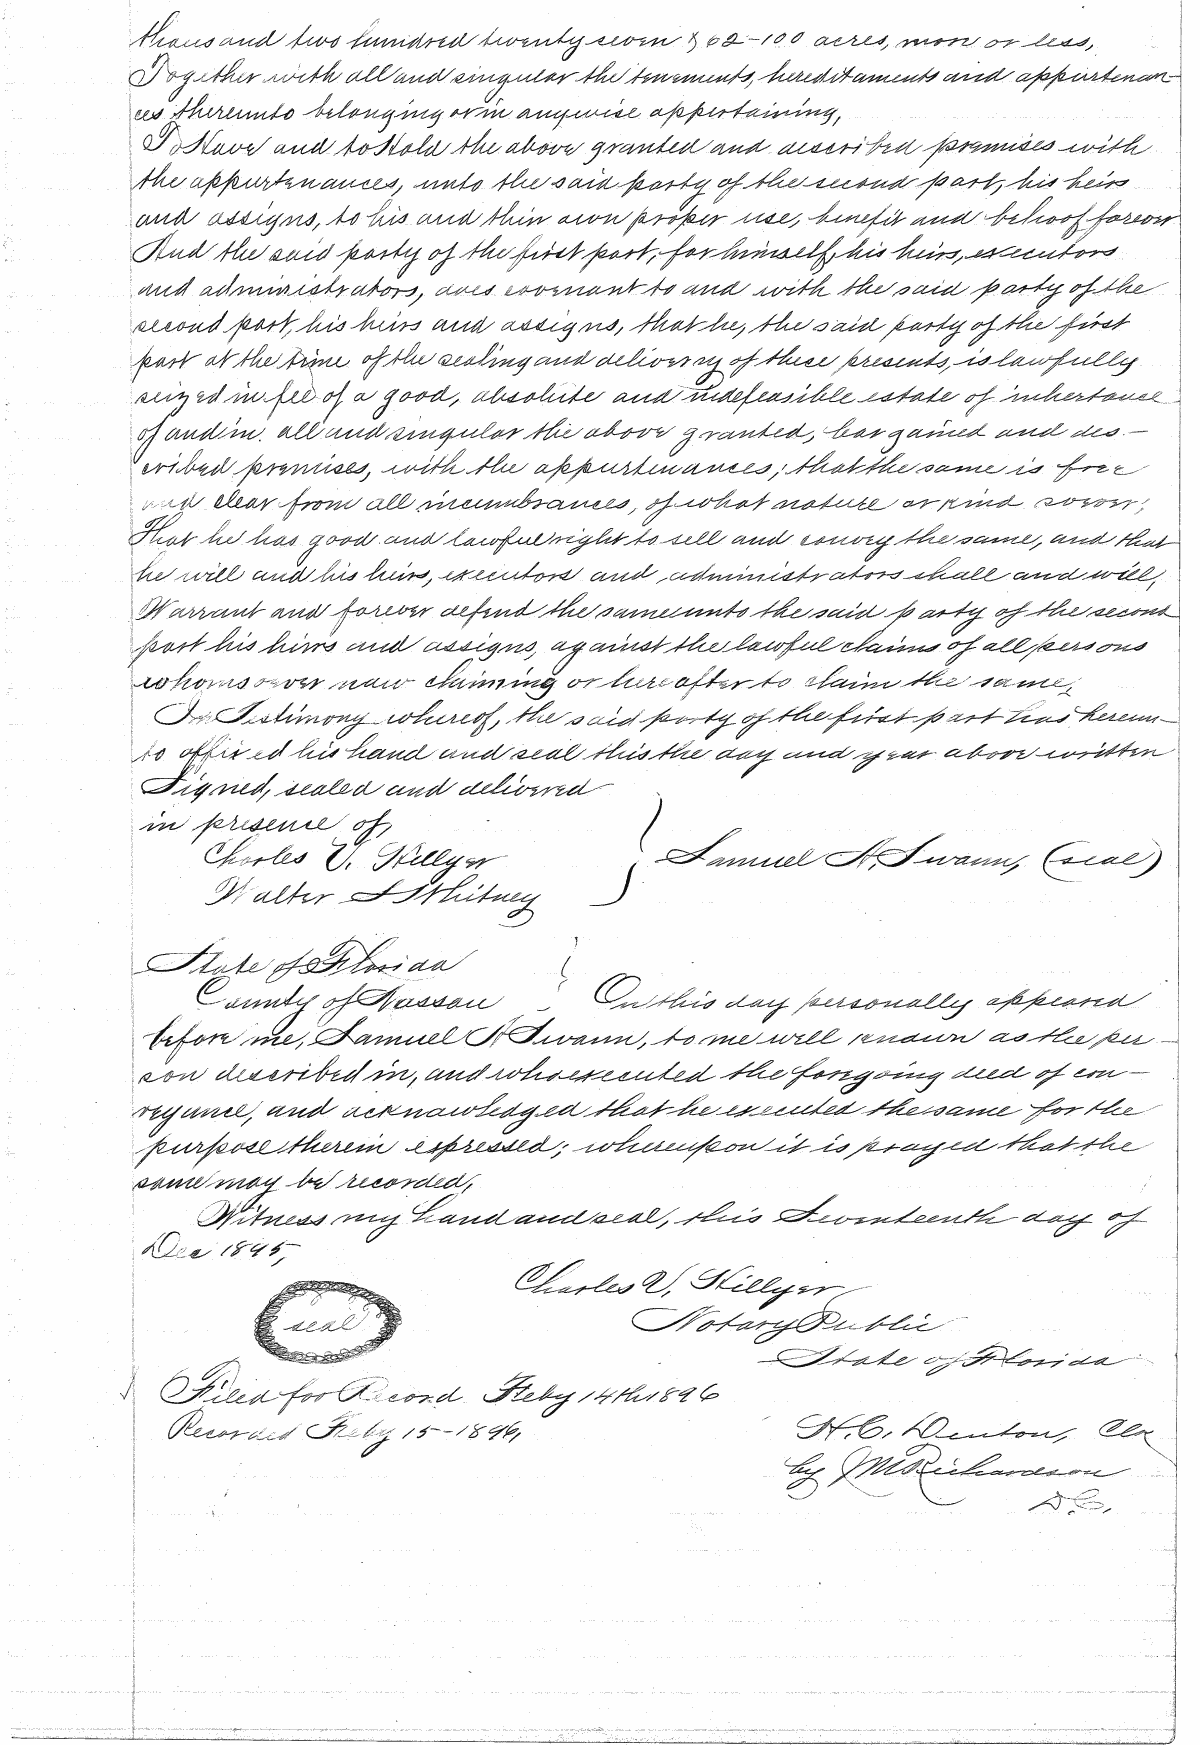 thousand two hundred twenty seven & 62-100 acres, more or less,
Together with all and singular the tenements, hereditaments and appurtenan-
ces thereunto belonging or in anywise appertaining,
To Have and to Hold the above granted and described premises with
the appurtenances, unto the said party of the second part, his heirs
and assigns, to his and thin own proper use, benefit and behoof forever
And the said party of the first part, for himself, his heirs, executors
and administrators, does covenant to and with the said party of the
second part, his heirs and assigns, that he, the said party of the first
part at the time of the sealing and delivery of these presents, is lawfully
seized in fee of a good, absolute and indefeasible estate of inhertance
of and in all and singular the above granted, bargained and des-
cribed premises, with the appurtenances; that the same is free
and clear from all incumbrances, of what nature or kind soever;
That he has good and lawful right to sell and convey the same, and that
he will and his heirs, executors and administrators shall and will,
Warrant and forever defend the same unto the said party of the second
part his hiers and assigns, against the lawful claims of all persons
whomsoever now claiming or hereafter to claim the same;
In Testimony whereof, the said party of the first part has hereun-
to affixed his hand and seal this the day and year above written
Signed, sealed and delivered
in presence of,
Charles V. Hillyer
Samuel A. Swann, (seal)
Walter S Whitney
State of Florida
County of Nassau On this day personally appeared
before me, Samuel A Swann, to me well known as the per-
son described in, and who executed the foregoing deed of con-
veyance, and acknowledged that he executed the same for the
purpose therein expressed; whereupon it is prayed that the
same may be recorded,
Witness my hand and seal, this Seventeenth day of
Dec 1895,
Charles V. Hillyer
seal
Notary Public
State of Florida
Filed for Record Feby 14th 1896
Recorded Feby 15-1896,
H. C. Denton, Clk
by J M Richardson
D. C.